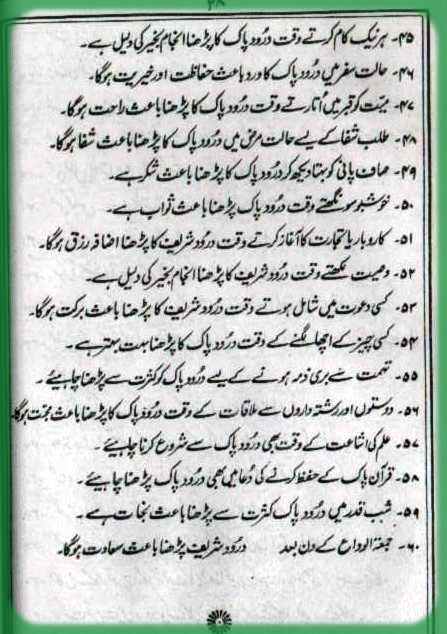 ۲۸
۴۵۔ ہر نیک کام کرتے وقت درُود پاک کا پڑھنا انجام بخیر کی دلیل ہے۔
۴۶۔ حالت سفر میں درُود پاک کا ورد باعث حفاظت اور خیریت ہوگا۔
۴۷۔ میّت کو قبر میں اُتارتے وقت درُود پاک کا پڑھنا باعث راحت ہوگا۔
۴۸۔ طلب شفا کے لیے حالت مرض میں درُود پاک کا پڑھنا باعث شفا ہوگا۔
۴۹۔ صاف پانی کو بہتا دیکھ کر درُود پاک کا پڑھنا باعث شکر ہے۔
۵۰۔ خوشبو سونگھتے وقت درُود پاک پڑھنا باعث ثواب ہے۔
۵۱۔ کاروبار یا تجارت کا آغاز کرتے وقت درُود شریف کا پڑھنا اضافہ رزق ہوگا۔
۵۲۔ وصیت لکھتے وقت درُود شریف کا پڑھنا انجام بخیر کی دلیل ہے۔
۵۳۔ کسی دعوت میں شامل ہوتے وقت درُود شریف کا پڑھنا باعث برکت ہوگا۔
۵۴۔ کسی چیز کے اچھا لگنے کے وقت درُود پاک کا پڑھنا بہت بہتر ہے۔
۵۵۔ تہمت سے بری ذمہ ہونے کے لیے درُود پاک کثرت سے پڑھنا چاہیئے۔
۵۶۔ دوستوں اور رشتہ داروں سے ملاقات کے وقت درُود پاک کا پڑھنا باعث محبت ہوگا۔
۵۷۔ علم کی اشاعت کے وقت بھی درُود پاک سے شروع کرنا چاہیئے۔
۵۸۔ قرآن پاک کے حفظ کرنے کی دُعا میں بھی درُود پاک پڑھنا چاہیئے۔
۵۹۔ شب قدر میں درُود پاک کثرت سے پڑھنا باعث نجات ہے۔
۶۰۔ جمعۃ الوداع کے دن بعد درود شریف پڑھنا باعث سعادت ہوگا۔